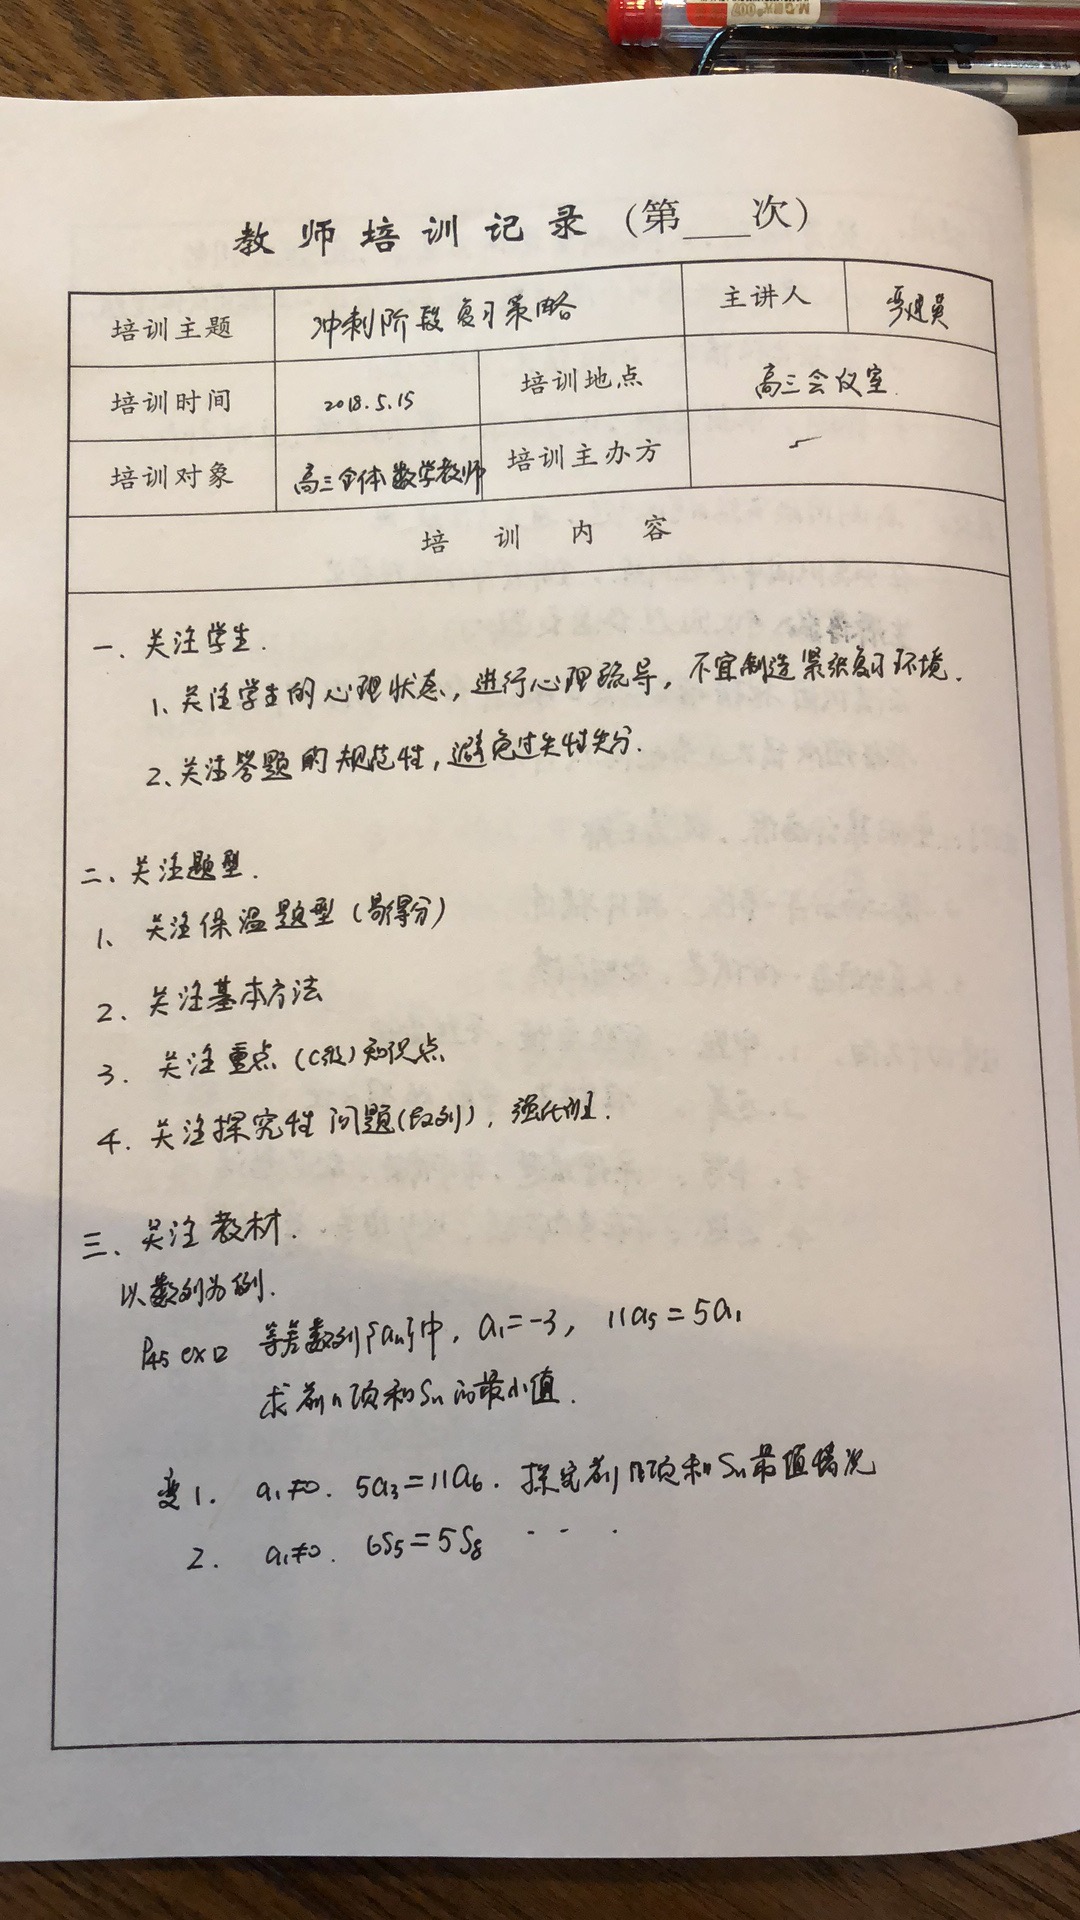 教师培训记录（第___次）
培训主题 冲刺阶段复习策略 主讲人
培训时间 2018.5.15 培训地点 高三会议室
培训对象 高三全体数学教师 培训主办方
培训内容
一、关注学生.
1、关注学生的心理状态，进行心理疏导，不宜制造紧张复习环境.
2、关注答题的规范性，避免过失性失分.
二、关注题型.
1、关注保温题型（易得分）
2、关注基本方法
3. 关注重点（C级）知识点
4. 关注探究性问题(数列)，强化班.
三、关注教材.
以数列为例.
P45 ex 等差数列{an}中，a1=-3，11a5=5a1
求前n项和Sn的最小值.
变1. a1≠0. 5a3=11a6. 探究前n项和Sn最值情况
2. a1≠0. 6S5=5S8 - - .